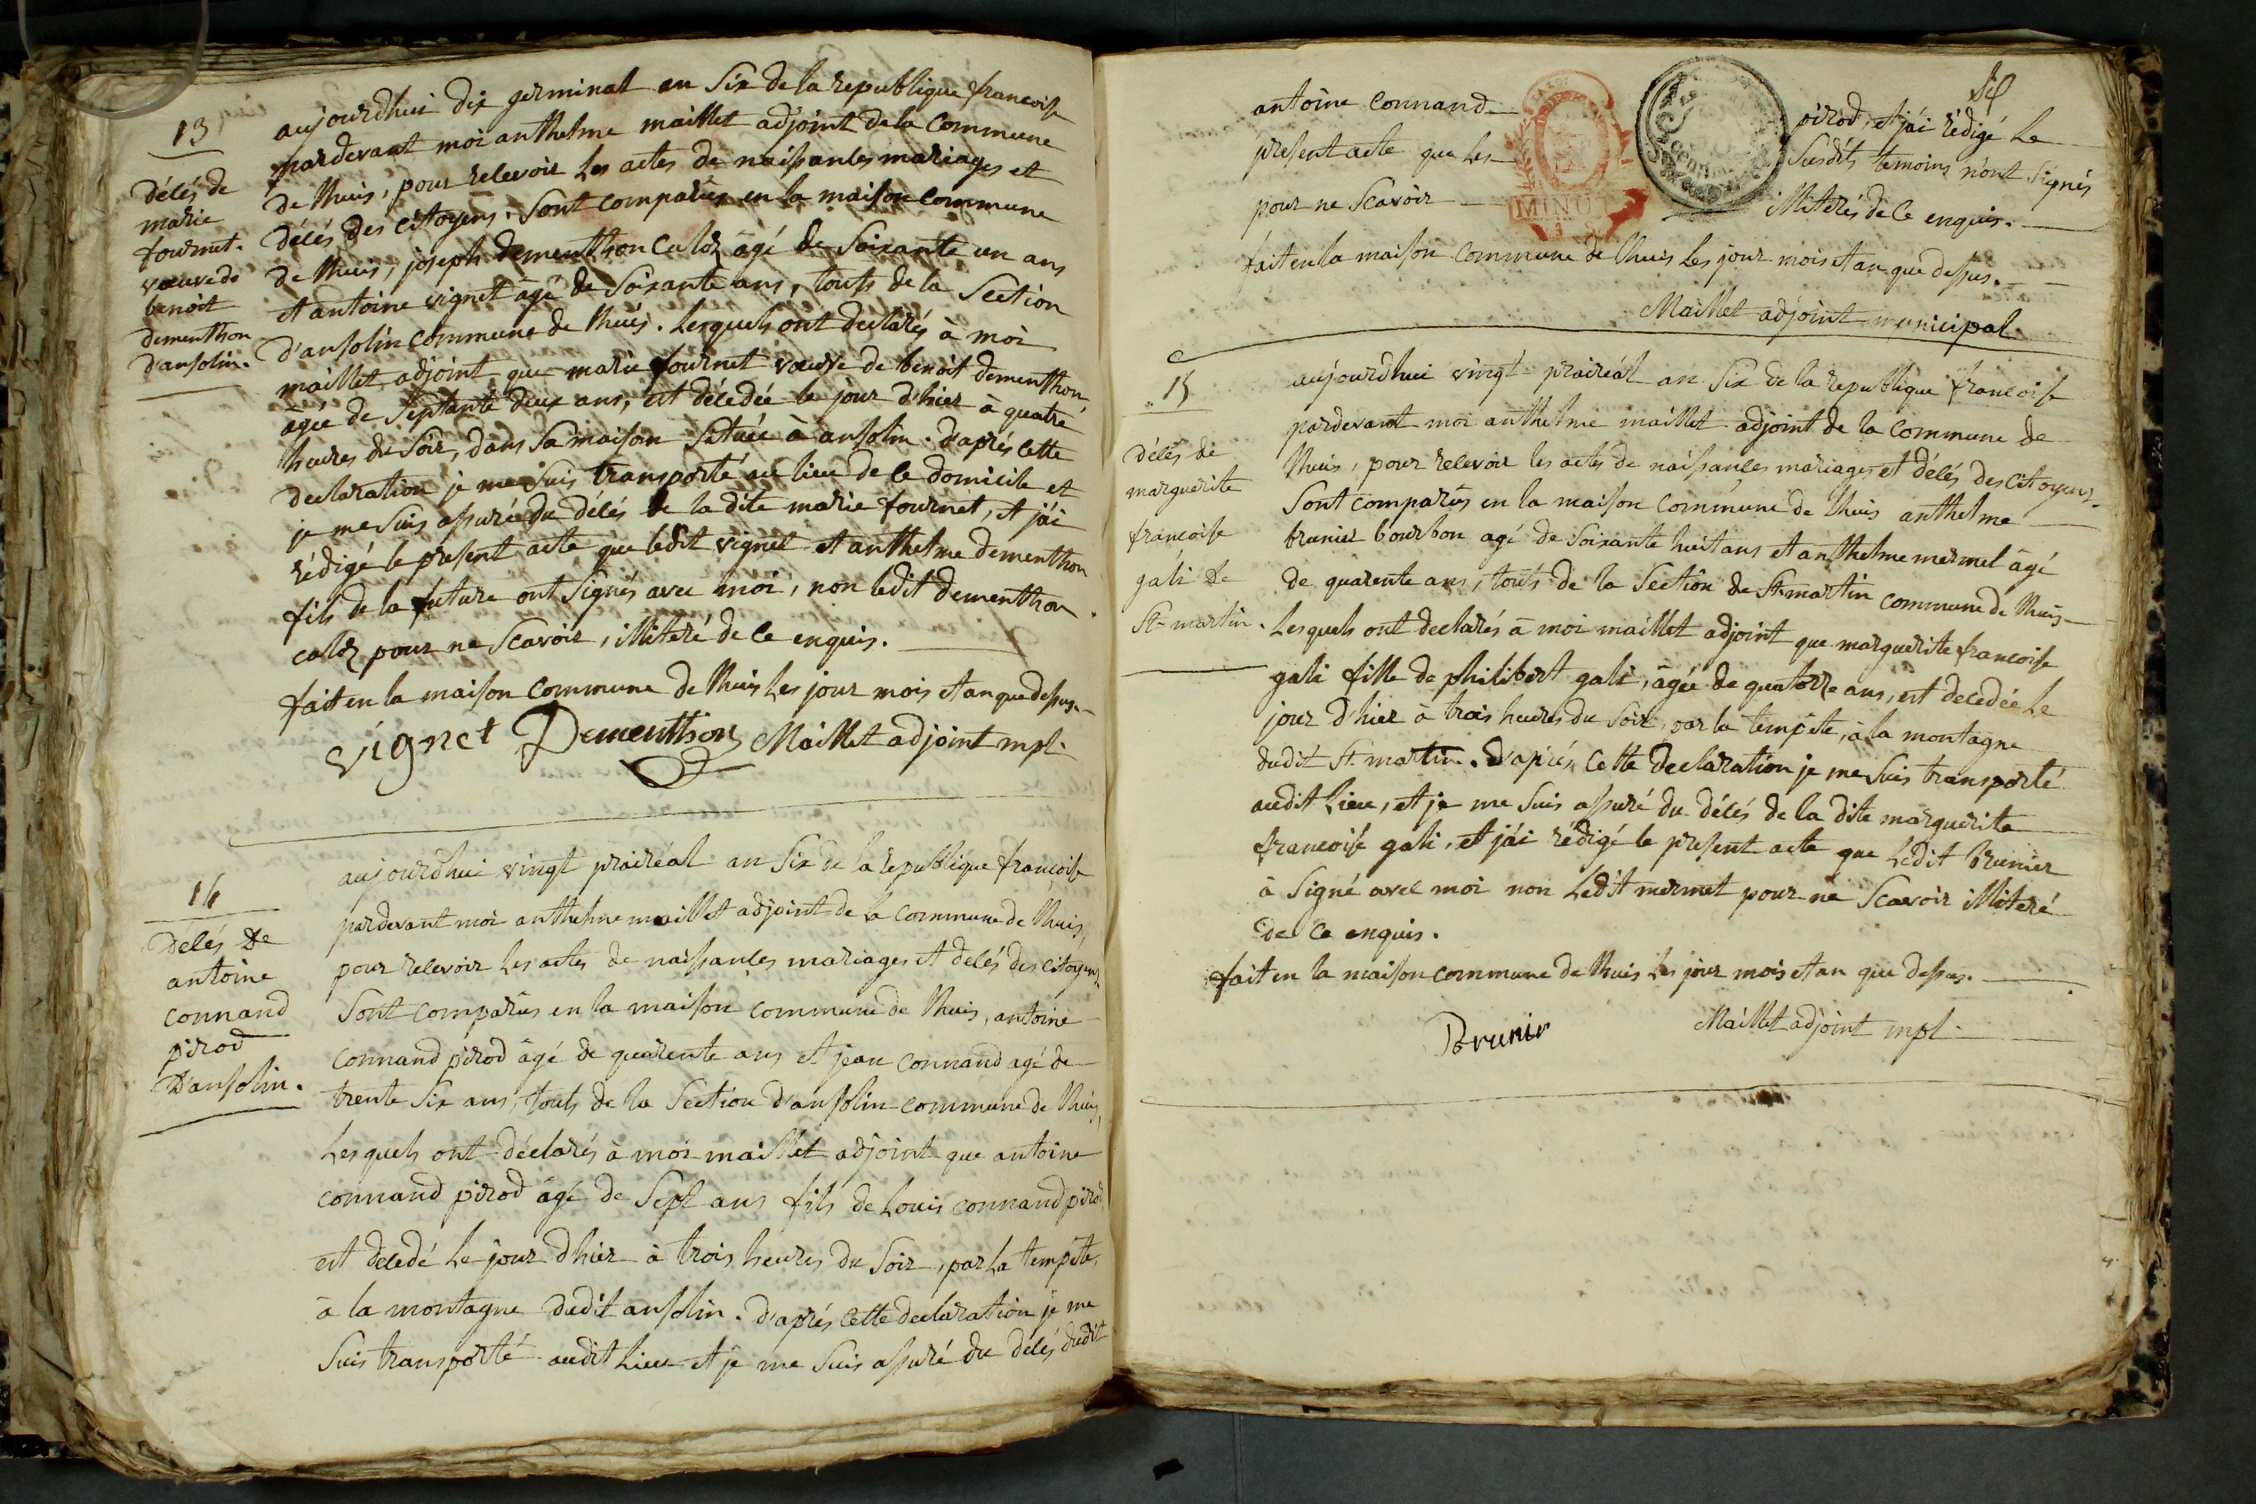 13
décés de
marie
fournet.
vœuve de
benoit
dementhon
d'anfolin.
aujourdhui dix germinal an Six de la republique francoise
pardevant moi anthelme maillet adjoint de la Commune
de lhuis, pour relevoir les actes de naissances mariages et
décés des citoyens. Sont comparûs en la maison commune
de lhuis, joseph dementhon caloz âgé de Soixante un ans
et antoine vignet âgé de Soixante ans, touts de la Section
d'anfolin commune de lhuis. Lesquels ont declarés à moi
maillet adjoint que marie fournet vœuve de benoit dementhon,
âgée de Septante deux ans, est décedée le jour d'hier à quatre
heures du Soir, dans Sa maison Située à anfolin. d'aprés cette
declaration je me Suis transporté au lieu de ce domicile et
je me Suis assurée du décés de la dite marie fournet, et j'ai
rédigé le present acte que ledit vignet et anthelme dementhon
fils de la future ont Signés avec moi, non ledit dementhon
caloz pour ne Scavoir, illiteré de ce enquis.
fait en la maison Commune de lhuis Les jour mois et an que dessus.
vignet Dementhon Maillet adjoint mpl.
14
Décés de
antoine
connand
pirod
D'anfolin.
aujourdhui vingt prairéal an Six de la republique francoise
pardevant moi anthelme maillet adjoint de la Commune de lhuis,
pour relevoir Les actes de naissances mariages et décés des citoyens
Sont comparûs en la maison commune de lhuis, antoine
connand pirod âgé de quarente ans et jean connand agé de
trente Six ans, touts de la Section d'anfolin commune de lhuis,
Lesquels ont déclarés à moi maillet adjoint que antoine
connand pirod âgé de Sept ans fils de Louis connand pirod
est décedé Le jour d'hier à trois heures du Soir, par La tempête,
à la montagne dudit anfolin. d'aprés cette declaration je me
Suis transporté audit Lieu et je me Suis assuré du décés dudit
antoine connand pirod, et j'ai rédigé Le
present acte que Les Susdits temoins n'ont Signés
pour ne Scavoir illiterés de ce enquis.
MINUT
fait en la maison commune de lhuis Les jour mois et an que dessus.
Maillet adjoint municipal.
15
Décés de
marguerite
francoise
gali de
St martin.
aujourdhui vingt prairéal an Six de la republique francoise
pardevant moi anthelme maillet adjoint de la Commune de
lhuis, pour relevoir les actes de naissances mariages et décés des Citoyens.
Sont comparûs en la maison commune de lhuis anthelme
brunier bourbon agé de Soixante huit ans et anthelme mermet âgé
de quarente ans, touts de la Section de St martin commune de lhuis
Lesquels ont declarés à moi maillet adjoint que marguerite francoise
gali fille de philibert gali, âgée de quatorze ans, est decedée Le
jour d'hier à trois heures du Soir, par la tempête, à la montagne
dudit St martin. D'aprés cette declaration je me Suis transporté
audit Lieu, et je me Suis assuré du décés de la dite marguerite
francoise gali, et j'ai rédigé le present acte que Ledit brunier
à Signé avec moi non Ledit mermet pour ne Scavoir illiteré
de ce enquis.
fait en la maison commune de lhuis Les jour mois et an que dessus.
Brunier Maillet adjoint mpl.